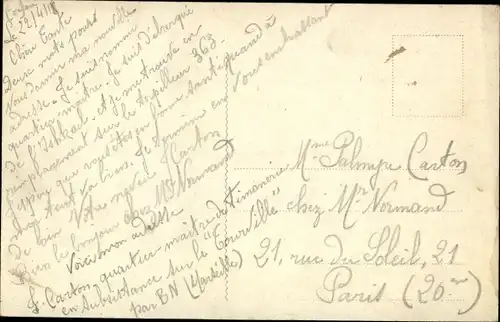 Le 22/4/18
Chère Tante
Deux mots pour
vous donner ma nouvelle
adresse. Je suis nommé
quartier-maître. Je suis débarqué
de l' et je me trouve en
remplacement sur le 363.
J'espère que vous êtes en bonne santé quand à
moi tout va bien. Je termine en vous embrassant
de loin Votre neveu J Carton
Bien le bonjour chez Mr Normand
Voici mon adresse
J. Carton, quartier maître de timonerie
en subsistance sur le "Tourville"
par BN (Marseille)
Mme Palmyre Carton
chez Mr Normand
21, rue du Soleil, 21
Paris (20me)